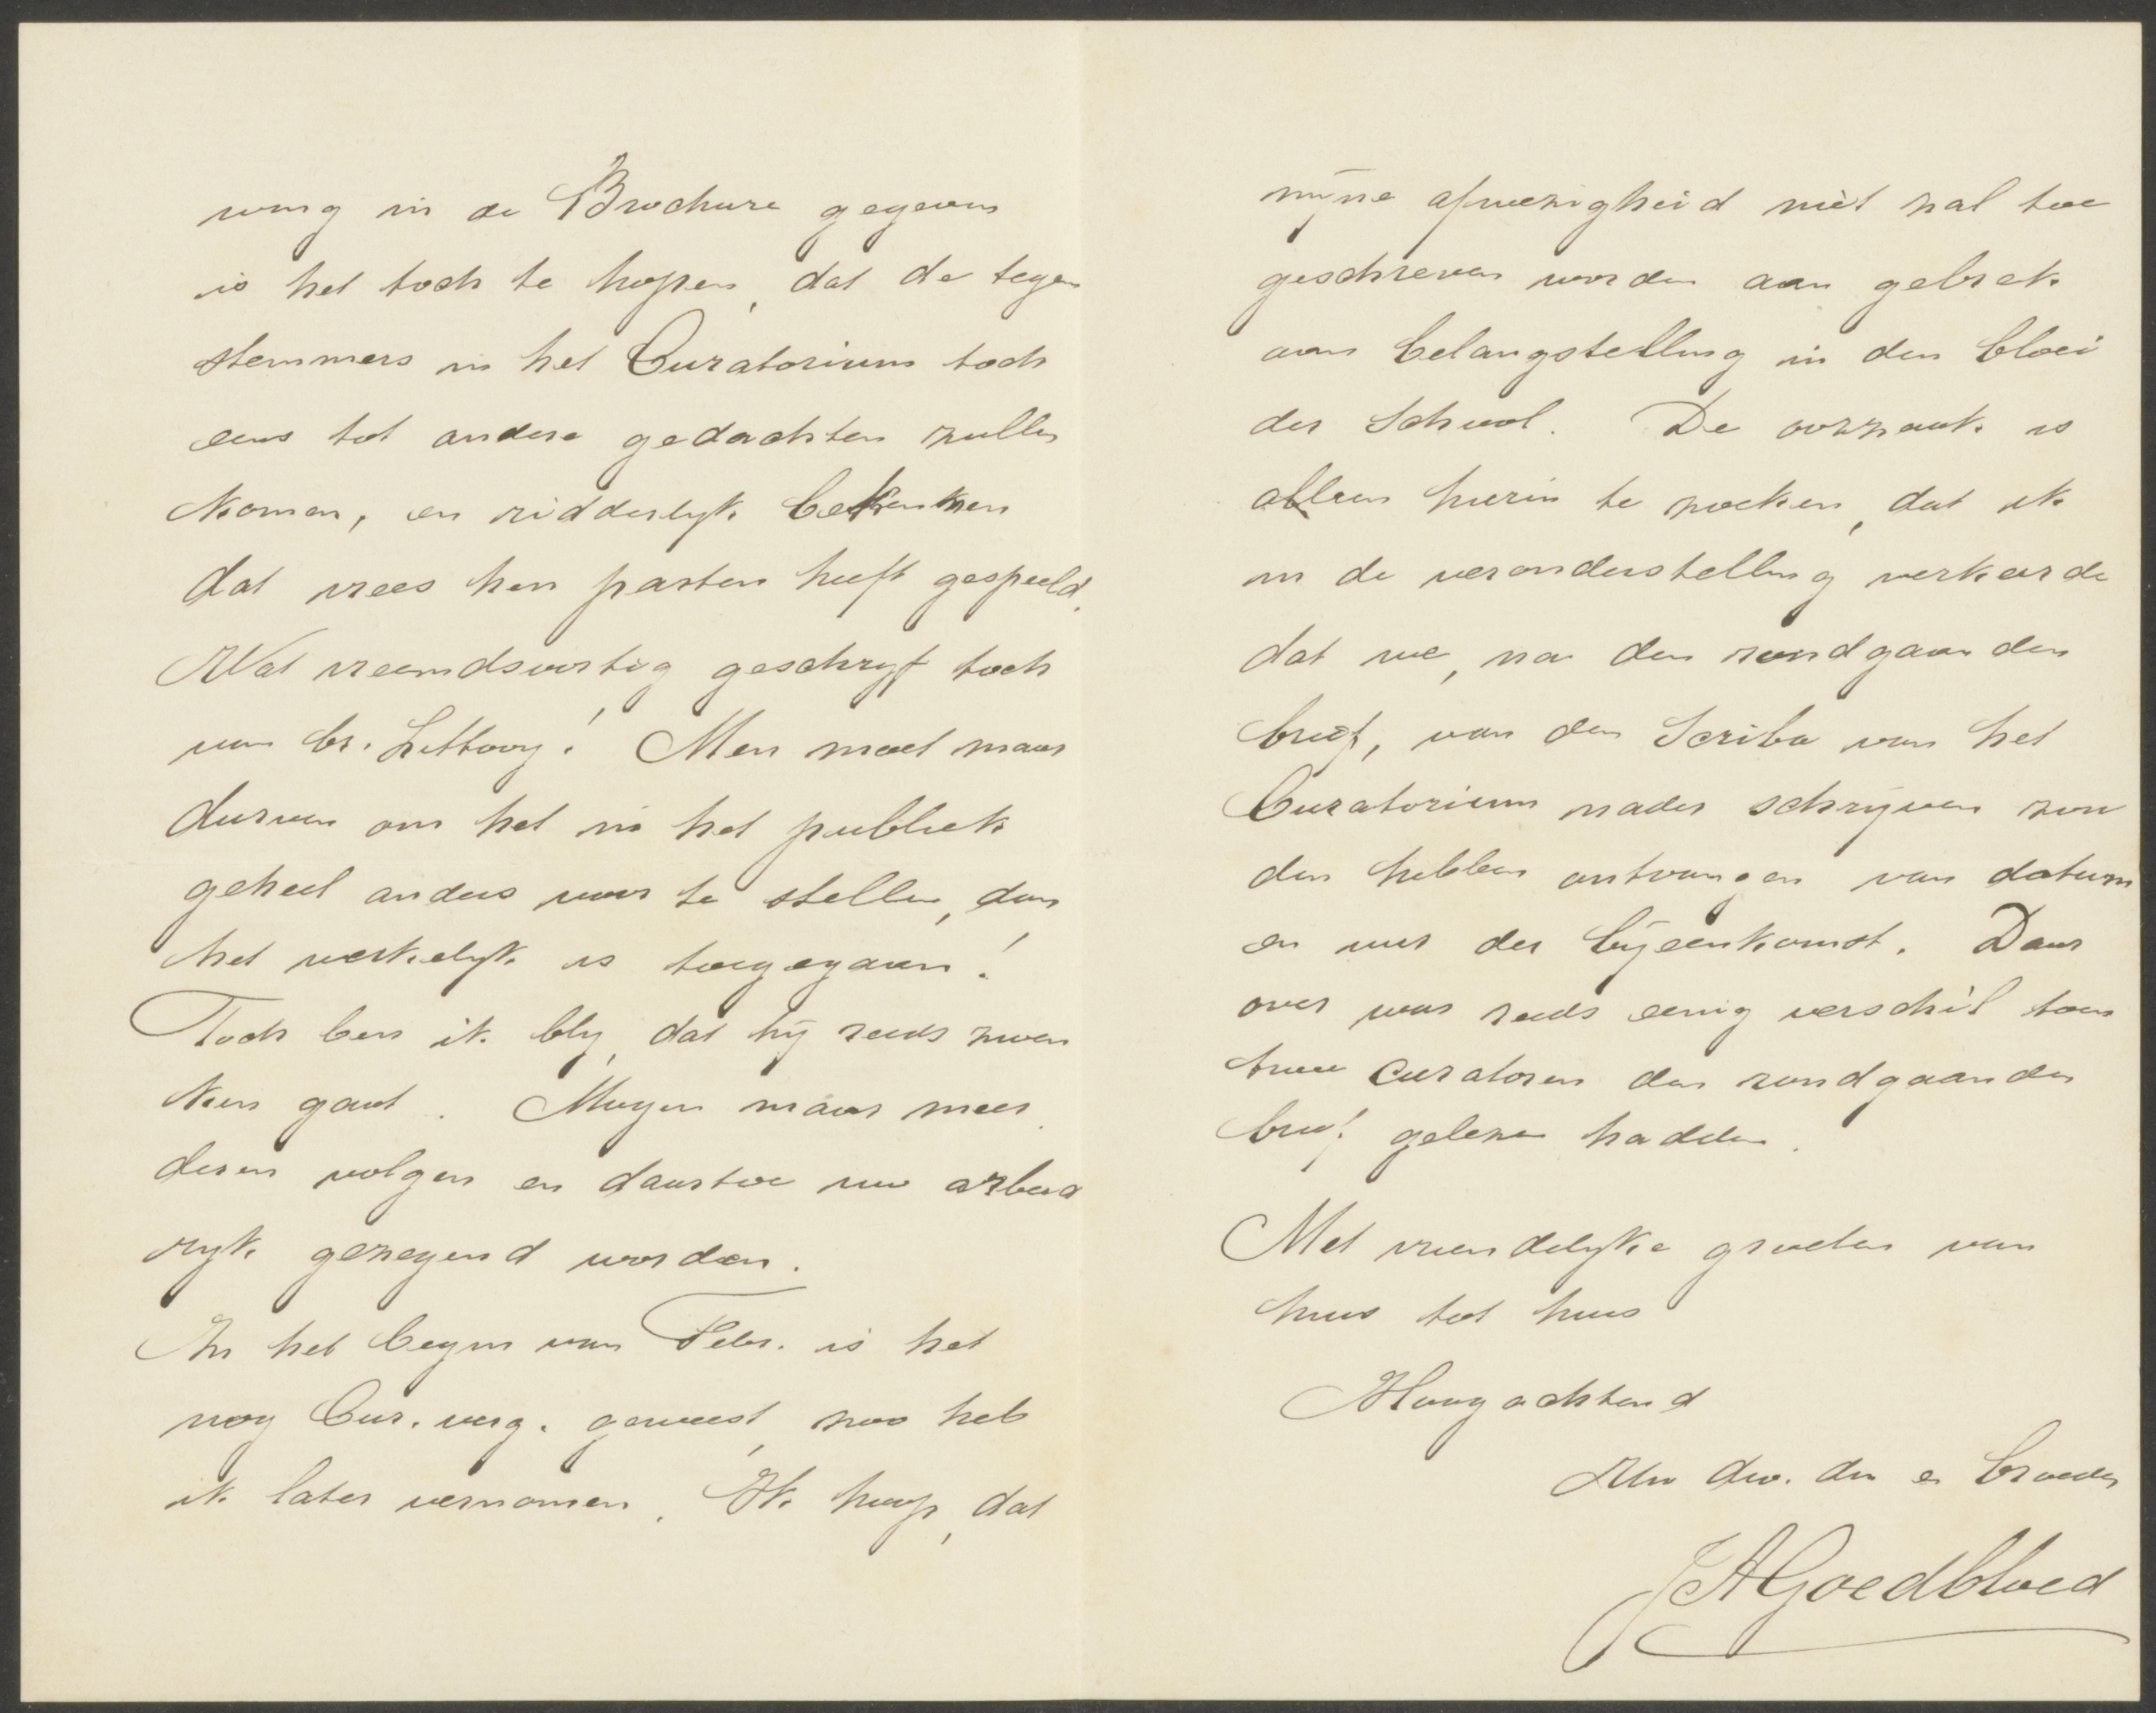 ving in de Brochure gegeven
is het toch te hopen, dat de tegen
stemmers in het Curatorium toch
eens tot andere gedachten zullen
komen, en ridderlijk bekennen
dat vrees hen parten heeft gespeeld.
Wat vreemdsoortig geschrijf toch
van br. Littooy! Men moet maar
durven om het in het publiek
geheel anders voor te stellen, dan
het werkelijk is toegegaan!
Toch ben ik blij, dat hij reeds zwen
ken gaat. Mogen maar meer
deren volgen en daartoe uw arbeid
rijk gezegend worden.
In het begin van Febr. is het
nog Cur. verg. geweest, zoo heb
ik later vernomen. Ik hoop, dat
mijne afwezigheid niet zal toe
geschreven worden aan gebrek
aan belangstelling in den bloei
der School. De oorzaak is
alleen hierin te zoeken, dat ik
in de veronderstelling verkeerde
dat we, na den rondgaanden
brief, van den Scriba van het
Curatorium nader schrijven zou
den hebben ontvangen van datum
en uur der bijeenkomst. Daar
over was reeds eenig verschil toen
twee Curatoren den rondgaanden
brief gelezen hadden.
Met vriendelijke groeten van
huis tot huis
Hoogachtend
Uw dw. dn e. broeder
JAGoedbloed